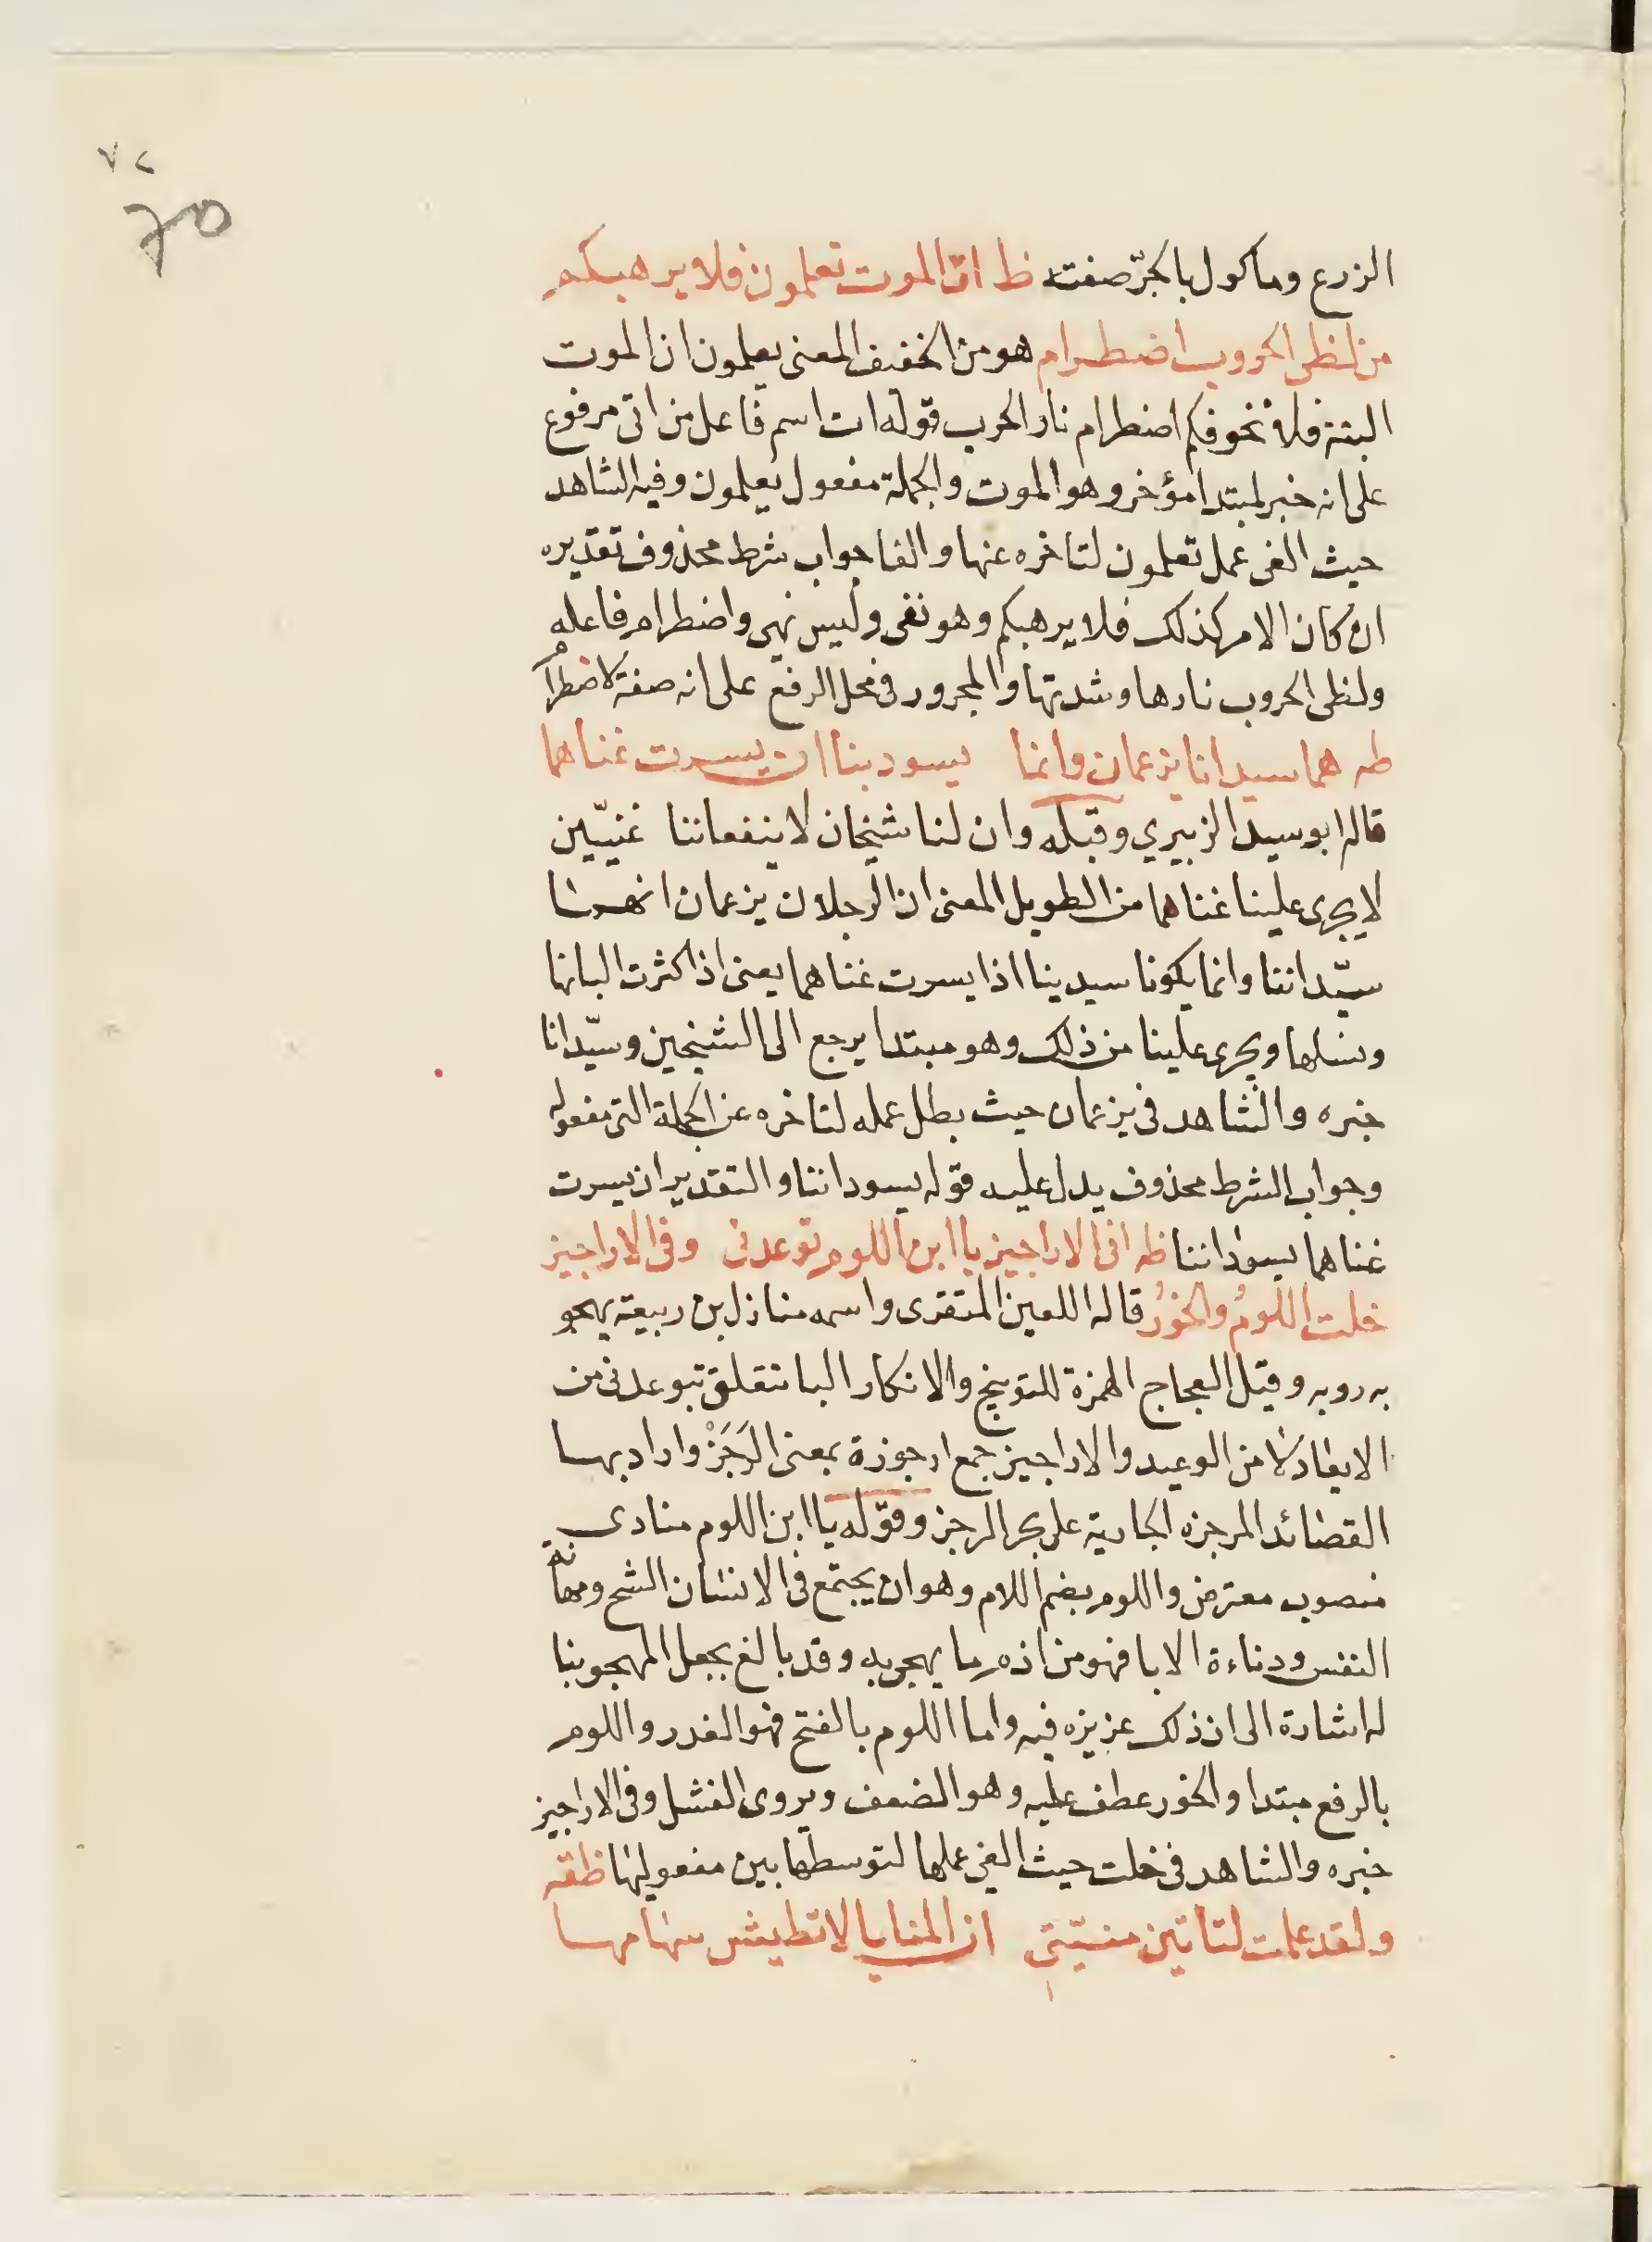 ٧٢
70
الزرع وماكول بالجرّ صفته ظ اتٍ الموت تعلمون فلا يرهبكم
من لظى الحروب اضطرام هو من الخفيف المعنى تعلمون ان الموت
البتة فلا تخوفكم اضطرام نار الحرب قوله ات اسم فاعل من اتى مرفوع
على انه خبر لمبتدا مؤخر وهو الموت والجملة مفعول تعلمون وفيه الشاهد
حيث الغى عمل تعلمون لتاخره عنها والفا جواب شرط محذوف تقديره
ان كان الامر كذلك فلا يرهبكم وهو نفى وليس نهى واضطرام فاعله
ولظى الحروب نارها وشدتها والمجرور فى محل الرفع على انه صفة لاضطرام
ظه هما سيدانا يزعمان وانما يسوديننا ان يسرت غناهما
قاله ابو سيد الزبيري وقبله وان لنا شيخان لا ينفعاننا غنيّين
لا يجرى علينا غناهما من الطويل المعنى ان الرجلان يزعمان انهما
سيّداننا وانما يكونا سيدينا اذا يسرت غناهما يعنى اذا كثرت البانها
ونسلها ويجرى علينا من ذلك وهو مبتدا يرجع الى الشيخين وسيّدانا
خبره والشاهد فى يزعمان حيث بطل عمله لتاخره عن الجملة التى مفعوله
وجواب الشرط محذوف يدل عليه قوله يسوداننا والتقدير ان يسرت
غناهما يسوداننا ظه افى الاراجيز يا ابن اللوم توعدنى وفى الاراجيز
خلت اللومُ والخورُ قاله اللعين المنقرى واسمه منازل بن ربيعة يهجو
به روبه وقيل العجاج الهمزة للتوبيخ والانكار البا تتعلق بتوعدنى من
الايعاد لا من الوعيد والاراجيز جمع ارجوزة بمعنى الرَجَزْ واراد بها
القصائد المرجزه الجارية على بحر الرجز وقوله يا ابن اللوم منادى
منصوب معترض واللوم بضم اللام وهو ان يجتمع فى الانسان الشح ومهانة
النفس ودناءة الابا فهو من اذم ما يهجى به وقد بالغ بجعل المهجو ابنا
له اشارة الى ان ذلك عزيزه فيه واما اللوم بالفتح فهو الغدر واللوم
بالرفع مبتدا والخور عطف عليه وهو الضعف ويروى الفشل وفى الاراجيز
خبره والشاهد فى خلت حيث الغى عملها لتوسطها بين مفعوليها ظقه
ولقد علمت لتاتين منيّتى ان المنايا لا تطيش سهامها